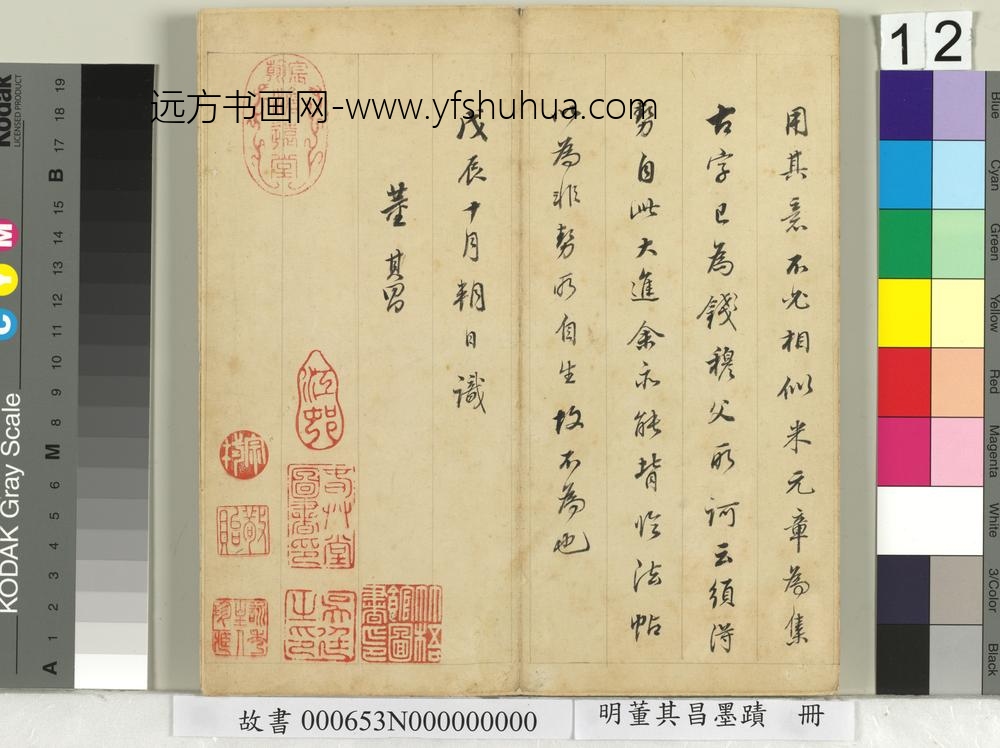 用其意不必相似米元章為集
古字已為錢穆父所訶云須得
勢自此大進余亦能背臨法帖
以為非勢所自生故不為也
戊辰十月朔日識
董其昌
远方书画网-www.yfshuhua.com
12
故書 000653N000000000
明董其昌墨蹟 冊
KODAK Gray Scale
Kodak
LICENSED PRODUCT
C
Y
M
A 1 2 3 4 5 6 M 8 9 10 11 12 13 14 15 B 17 18 19
Blue
Cyan
Green
Yellow
Red
Magenta
White
3/Color
Black